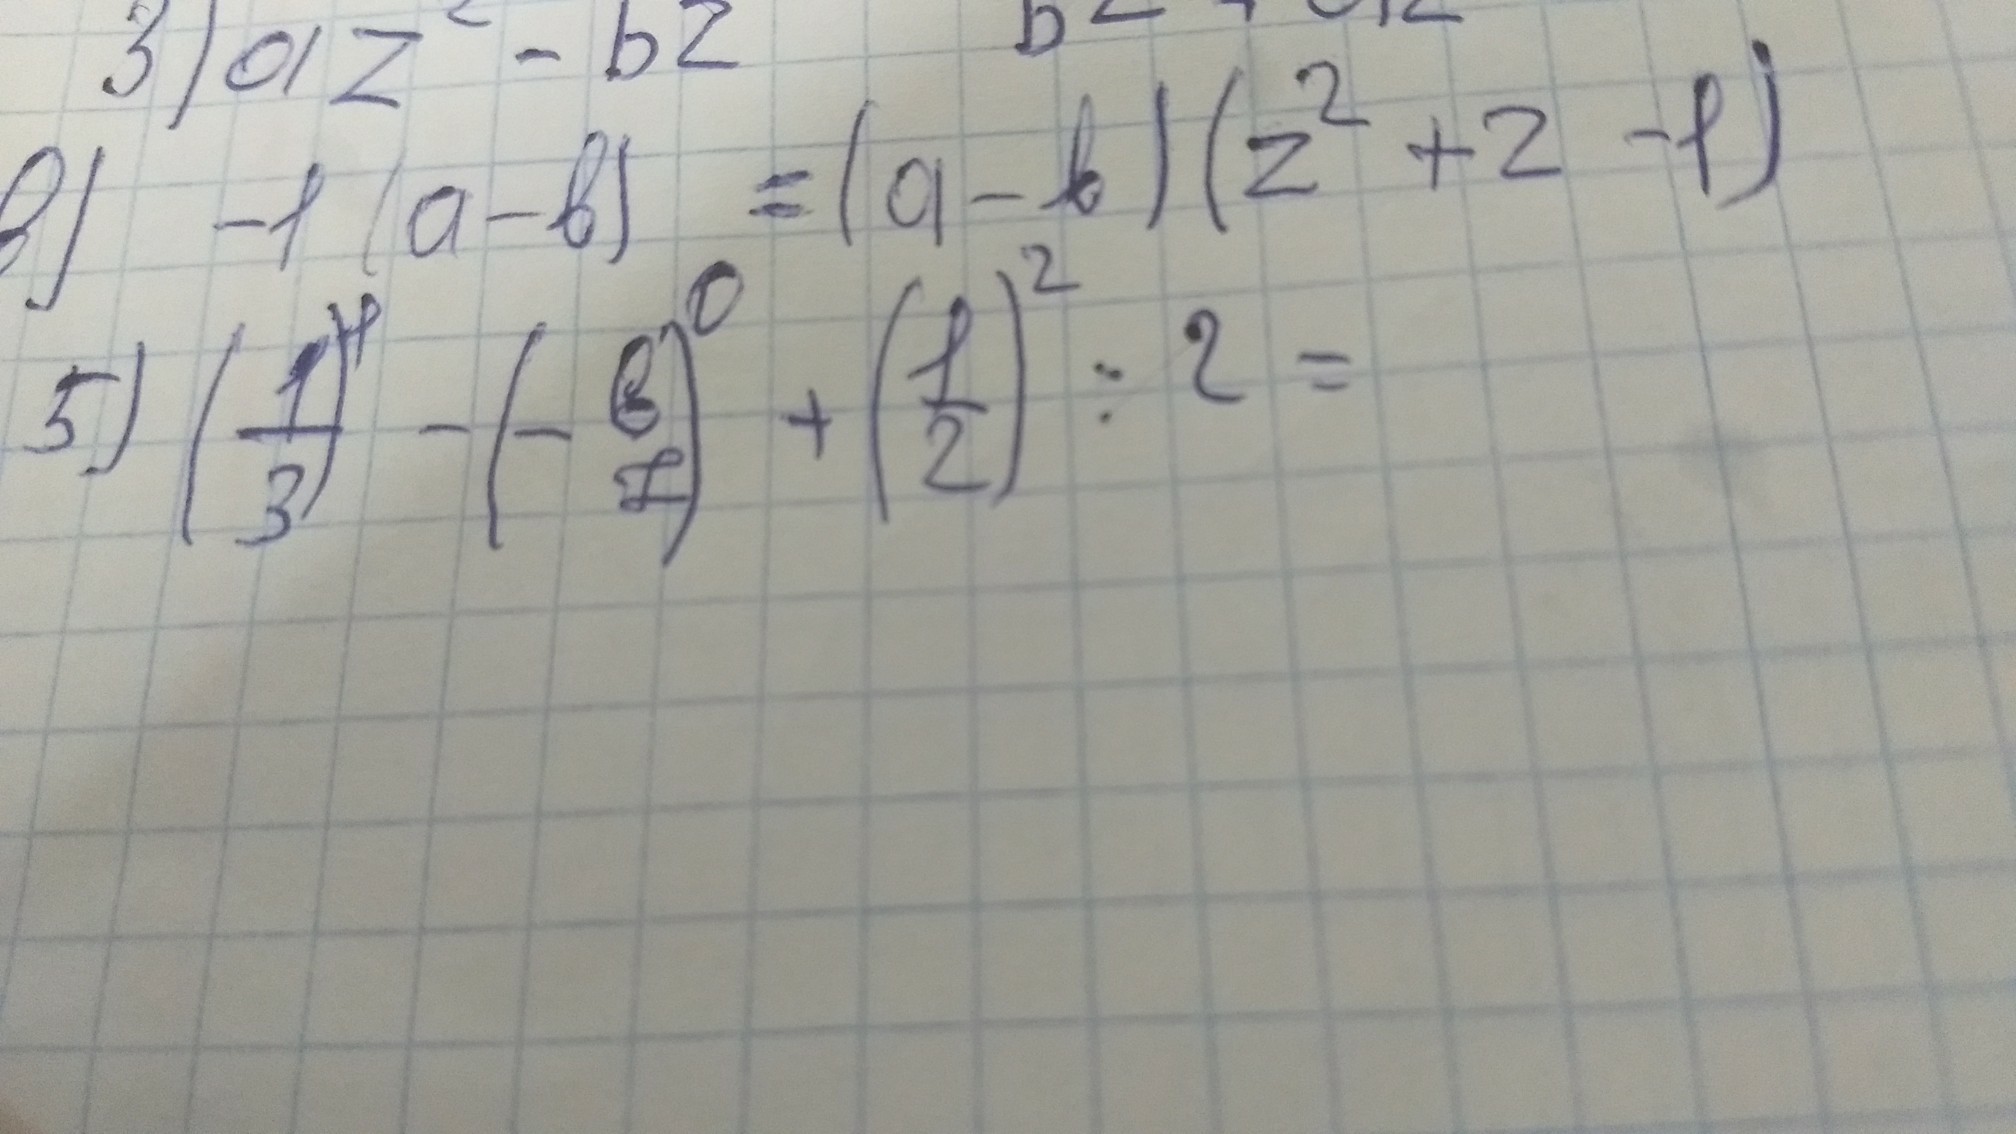 3) az² - bz
в) -1 (a-b) = (a-b) (z² + z - 1)
5) (1/3)⁻¹ - (-6/7)⁰ + (1/2)² : 2 =